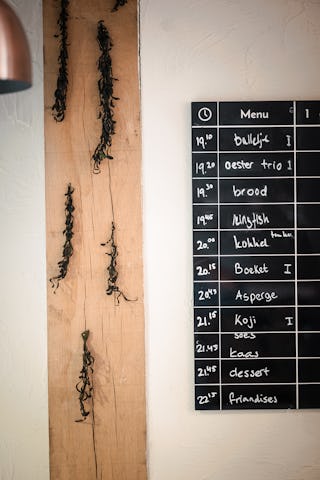 Menu 1
19.10 balletje I
19.20 oester trio I
19.30 brood
19.45 kingfish
20.00 kokkel
20.15 Boeket I
20.45 Asperge
21.15 Koji I
soes
21.45 kaas
21.45 dessert
22.15 friandises